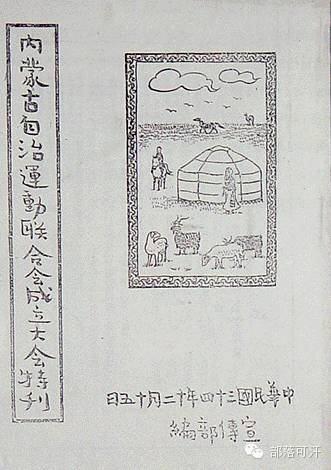 內蒙古自治運動联合会成立大会特刊
中華民國三十四年十二月十五日
宣傳部編
部落可汗